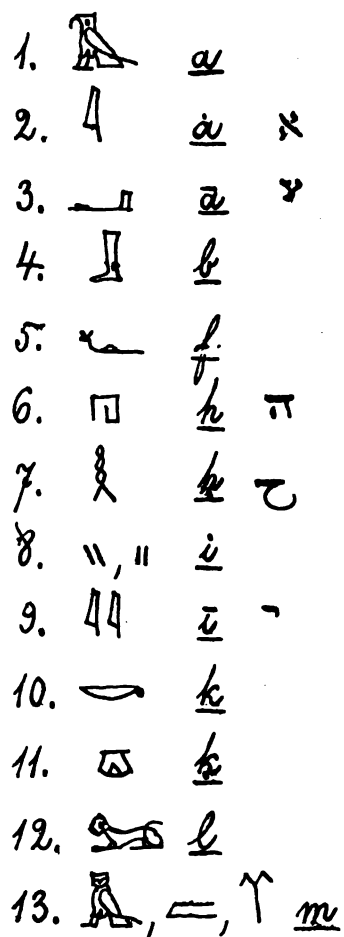 1. 𓄿 a
2. 𓇋 ȧ א
3. 𓂝 ā ע
4. 𓃀 b
5. 𓆑 f.
6. 𓉔 h ה
7. 𓎛 ḥ ح
8. 𓏭, 𓏮 i
9. 𓇌 ī י
10. 𓎡 k
11. 𓎼 ḳ
12. 𓃭 l
13. 𓅓, 𓐝, m